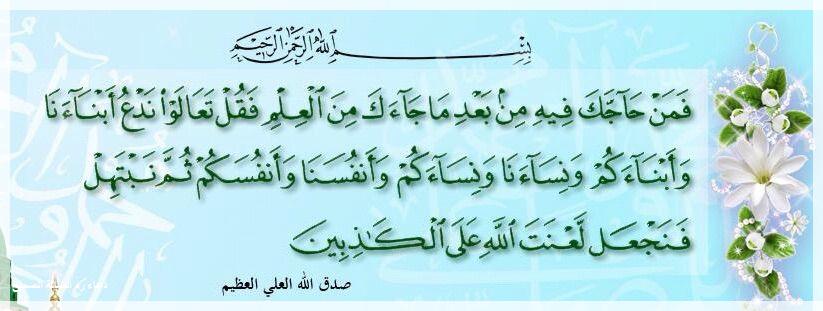 بِسْمِ اللَّهِ الرَّحْمَٰنِ الرَّحِيمِ
فَمَنْ حَآجَّكَ فِيهِ مِنۢ بَعْدِ مَا جَآءَكَ مِنَ ٱلْعِلْمِ فَقُلْ تَعَالَوْا۟ نَدْعُ أَبْنَآءَنَا
وَأَبْنَآءَكُمْ وَنِسَآءَنَا وَنِسَآءَكُمْ وَأَنفُسَنَا وَأَنفُسَكُمْ ثُمَّ نَبْتَهِلْ
فَنَجْعَل لَّعْنَتَ ٱللَّهِ عَلَى ٱلْكَٰذِبِينَ
صدق الله العلي العظيم